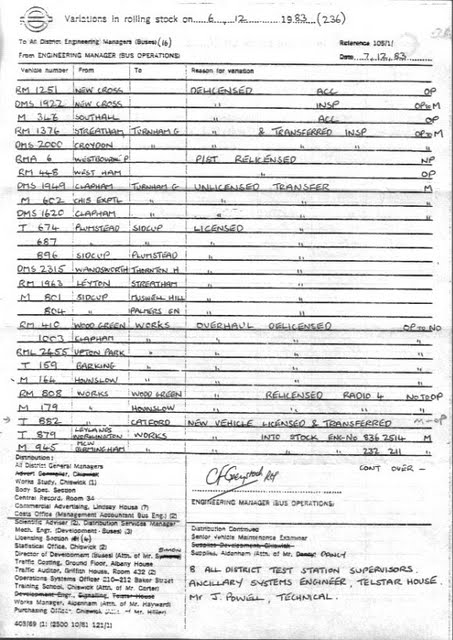 Variations in rolling stock on 6, 12 1983 (236)
To All District Engineering Managers (Buses) (16) Reference 105/1/
From ENGINEERING MANAGER (BUS OPERATIONS) Date 7, 12, 83
Vehicle number From To Reason for variation
RM 1251 NEW CROSS DELICENSED ACC OP
DMS 1922 NEW CROSS " INSP OP to M
M 348 SOUTHALL " ACC OP
RM 1376 STREATHAM TURNHAM G " & TRANSFERRED INSP OP to M
DMS 2000 CROYDON " " " " "
RMA 6 WESTBOURNE P PIST RELICENSED NP
RM 448 WEST HAM " " OP
DMS 1949 CLAPHAM TURNHAM G UNLICENSED TRANSFER M
M 602 CHIS EXPTL " " " "
DMS 1620 CLAPHAM " " " "
T 674 PLUMSTEAD SIDCUP LICENSED " "
687 " " " " "
896 SIDCUP PLUMSTEAD " " "
DMS 2315 WANDSWORTH THORNTON H " " "
RM 1963 LEYTON STREATHAM " " "
M 801 SIDCUP MUSWELL HILL " " "
804 " PALMERS GN " " "
RM 410 WOOD GREEN WORKS OVERHAUL DELICENSED OP to NO
1003 CLAPHAM " " " "
RML 2455 UPTON PARK " " " "
T 159 BARKING " " " "
M 164 HOUNSLOW " " " "
RM 808 WORKS WOOD GREEN " RELICENSED RADIO 4 NO TO OP
M 179 " HOUNSLOW " " "
T 882 " CATFORD NEW VEHICLE LICENSED & TRANSFERRED M-OP
T 879 LEYLANDS WORKINGTON WORKS " " INTO STOCK ENG-No 836 2514 M
M 945 MCW BIRMINGHAM " " " " 232 211 "
CONT OVER -
Distribution:
All District General Managers
Advert Controller, Chiswick
Works Study, Chiswick (1)
Body Spec. Section
Central Record, Room 34
Commercial Advertising, Lindsay House (7)
Costs Office (Management Accountant Bus Eng.) (2)
Scientific Adviser (2), Distribution Services Manager
Mech. Engr. (Development - Buses) (3)
Licensing Section (4)
Statistical Office, Chiswick (2)
Director of Development (Buses) (Attn. of Mr. SIMON)
Traffic Costing, Ground Floor, Albany House
Traffic Auditor, Griffith House, Room 432 (2)
Operations Systems Officer 210-212 Baker Street
Training School, Chiswick (Attn. of Mr. Carter)
Development Eng., Signalling, Telstar House
Works Manager, Aldenham (Attn. of Mr. Hayward)
Purchasing Office, Chiswick (Attn. of Mr. Hiller)
403/69 (1) (2500 10/81 121/1)
ENGINEERING MANAGER (BUS OPERATIONS)
Distribution Continued
Senior Vehicle Maintenance Examiner
Supplies Development, Chiswick
Supplies, Aldenham (Attn. of Mr. DANLY)
8 ALL DISTRICT TEST STATION SUPERVISORS.
ANCILLARY SYSTEMS ENGINEER, TELSTAR HOUSE.
Mr J. POWELL, TECHNICAL.